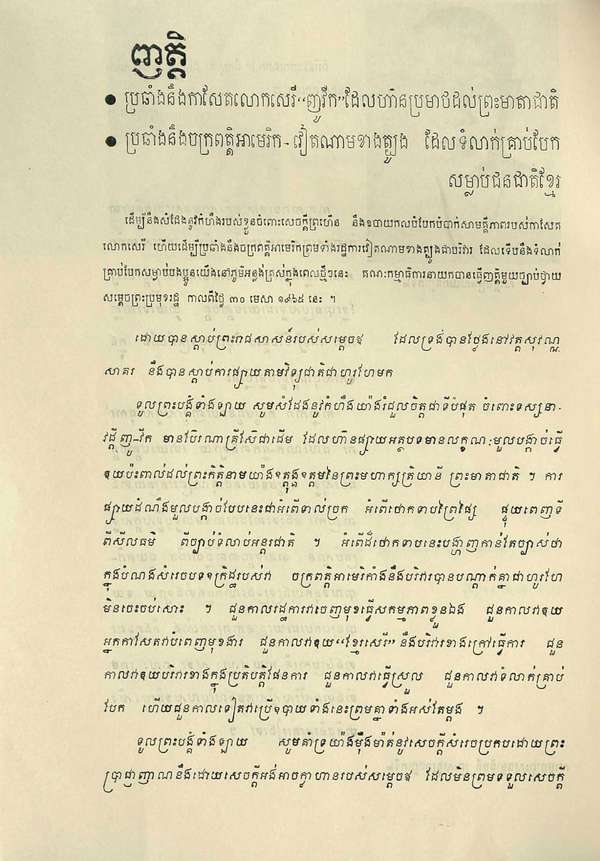 ញត្តិ
● ប្រឆាំងនឹងកាសែតលោកសេរី“ញូវីក”ដែលហ៊ានប្រមាថដល់ព្រះមាតាជាតិ
● ប្រឆាំងនឹងចក្រពត្តិអាមេរិក-វៀតណាមខាងត្បូង ដែលទំលាក់គ្រាប់បែក
សម្លាប់ជនជាតិខ្មែរ
ដើម្បីនឹងសំដែងនូវកំហឹងរបស់ខ្លួនចំពោះសេចក្តីព្រហើន នឹងឧបាយកលបំបែកបំបាក់សាមគ្គីភាពរបស់កាសែត
លោកសេរី ហើយដើម្បីប្រឆាំងនឹងចក្រពត្តិអាមេរិកព្រមទាំងរដ្ឋការវៀតណាមខាងត្បូងជាបរិវារ ដែលទើបនឹងទំលាក់
គ្រាប់បែកសម្លាប់បងប្អូនយើងនៅភូមិអន្លង់ត្រស់ក្នុងពេលថ្មីៗនេះ គណៈកម្មាធិការនាយកបានធ្វើញត្តិមួយច្បាប់ថ្វាយ
សម្តេចព្រះប្រមុខរដ្ឋ កាលពីថ្ងៃ ៣០ មេសា ១៩៦៥ នេះ ។
ដោយបានស្តាប់ព្រះរាជសាសន៍របស់សម្តេចឪ ដែលទ្រង់បានថ្លែងនៅវត្តសុវណ្ណ
សាគរ នឹងបានស្តាប់ការផ្សាយតាមវិទ្យុជាតិជាហូរហែមក
ទូលព្រះបង្គំទាំងឡាយ សូមសំដែងនូវកំហឹងយ៉ាងរំជួលចិត្តជាទីបំផុត ចំពោះទស្សនា-
វដ្តីញូ-វីក មានប៊ែរណាគ្រីសែជាដើម ដែលហ៊ានផ្សាយអត្ថបទមានលក្ខណៈមួលបង្កាច់ធ្វើ
ឲ្យប៉ះពាល់ដល់ព្រះកិត្តិនាមយ៉ាងឧត្តុង្គឧត្តមនៃព្រះមហាក្សត្រិយានី ព្រះមាតាជាតិ ។ ការ
ផ្សាយដំណឹងមួលបង្កាច់បែបនេះជាអំពើទាល់ច្រក អំពើថោកទាបព្រៃផ្សៃ ផ្ទុយពេញទី
ពីសីលធម៌ ពីច្បាប់ទំលាប់អន្តរជាតិ ។ អំពើដ៏ថោកទាបនេះបង្ហាញកាន់តែច្បាស់ថា
ក្នុងបំណងសំរេចបទឧក្រិដ្ឋរបស់វា ចក្រពត្តិអាមេរិកាំងនឹងបរិវារបានបណ្តាក់គ្នាជាហូរហែ
មិនចេះចប់សោះ ។ ជួនកាលរដ្ឋការវាចេញមុខធ្វើសកម្មភាពខ្លួនឯង ជួនកាលវាឲ្យ
អ្នកកាសែតវាបំពេញមុខងារ ជួនកាលវាឲ្យ“ខ្មែរសេរី”នឹងបរិវារខាងក្រៅធ្វើការ ជួន
កាលវាឲ្យបរិវារខាងក្នុងប្រតិបត្តិផែនការ ជួនកាលវាធ្វើស្រួល ជួនកាលវាទំលាក់គ្រាប់
បែក ហើយជួនកាលទៀតវាប្រើឧបាយទាំងនេះព្រមគ្នាទាំងអស់តែម្តង ។
ទូលព្រះបង្គំទាំងឡាយ សូមគាំទ្រយ៉ាងម៉ឺងម៉ាត់នូវសេចក្តីសំរេចប្រកបដោយព្រះ
ប្រាជ្ញាញាណនឹងដោយសេចក្តីអង់អាចក្លាហានរបស់សម្តេចឪ ដែលមិនព្រមទទួលសេចក្តី